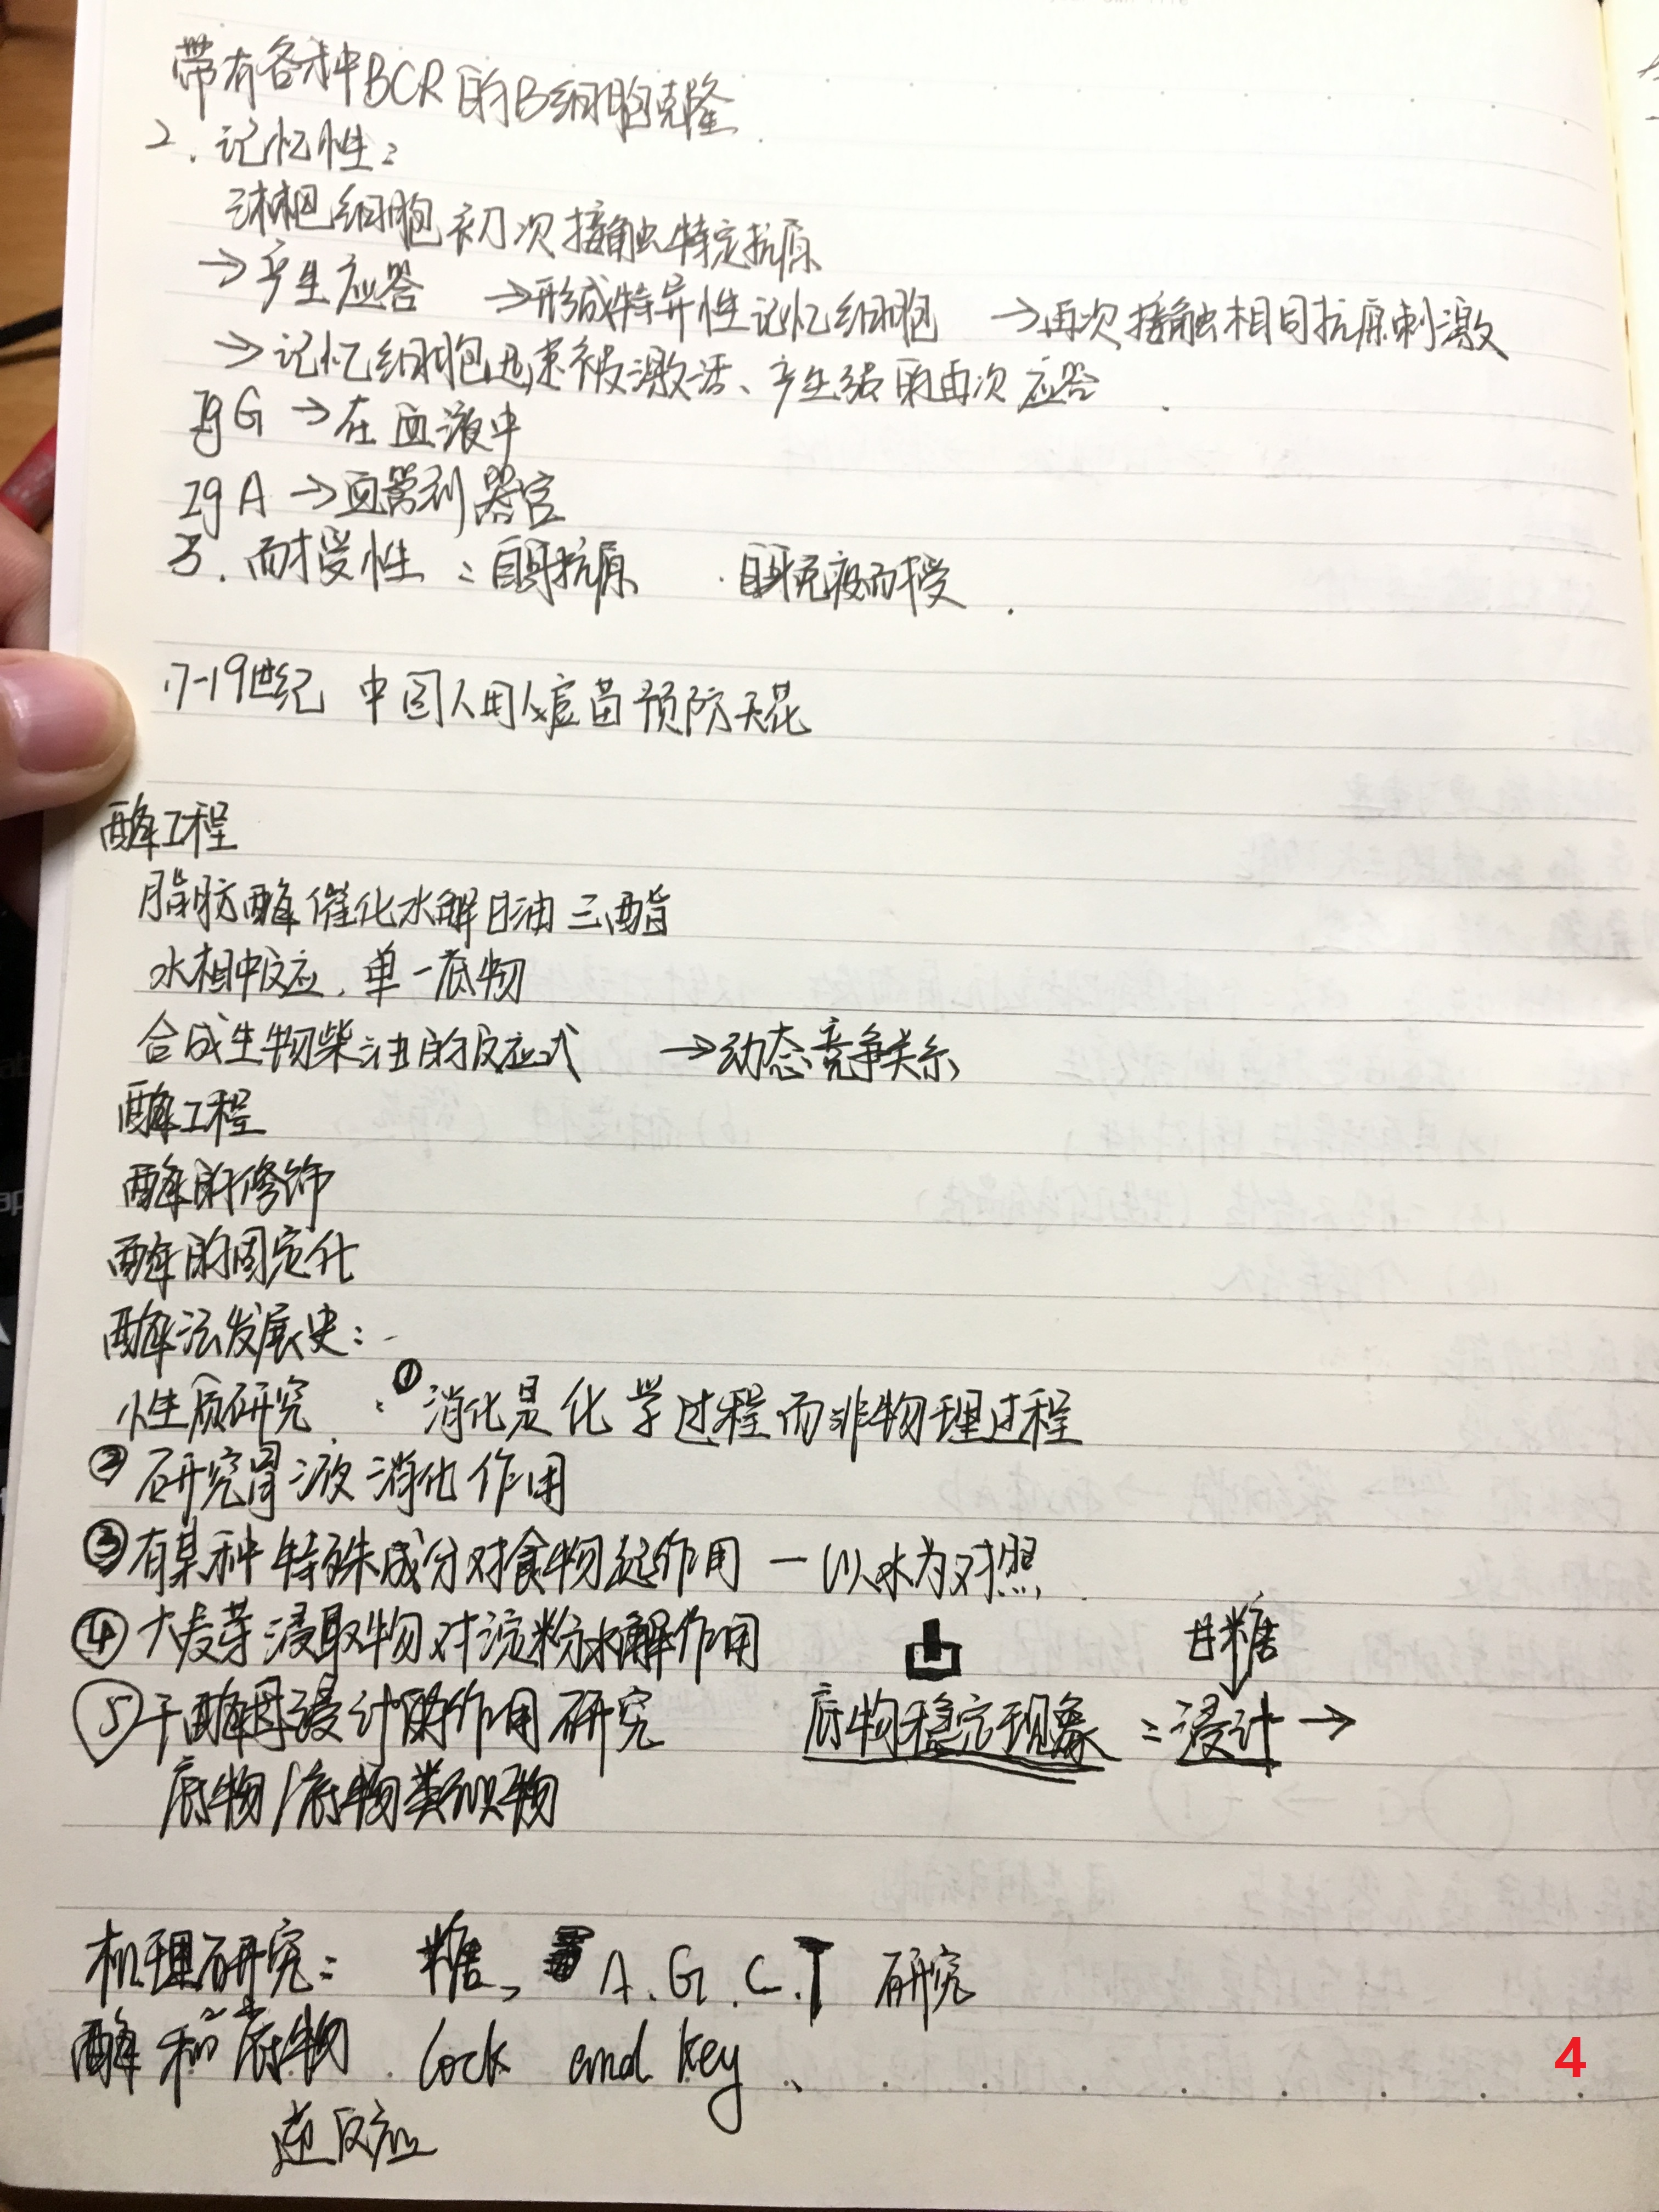 带有各种BCR的B细胞克隆.
2. 记忆性:
淋巴细胞初次接触特定抗原
→产生应答 →形成特异性记忆细胞 →再次接触相同抗原刺激
→记忆细胞迅速被激活、产生强的再次应答.
IgG →在血液中
IgA →血管到器官
3. 耐受性: 自身抗原 . 自身免疫耐受.
17-19世纪 中国人用人痘苗预防天花
酶工程
脂肪酶催化水解甘油三酯
水相中反应、单一底物
合成生物柴油的反应式 →动态竞争关系
酶工程
酶的修饰
酶的固定化
酶法发展史:
性质研究: ①消化是化学过程而非物理过程
②研究胃液消化作用
③有某种特殊成分对食物起作用 — 以水为对照.
④大麦芽浸取物对淀粉水解作用 甘糖
⑤干酵母浸汁的作用研究 底物稳定现象: 浸汁→
底物/底物类似物
机理研究: 糖、A.G.C.T 研究
酶和底物. lock and key、
逆反应
4